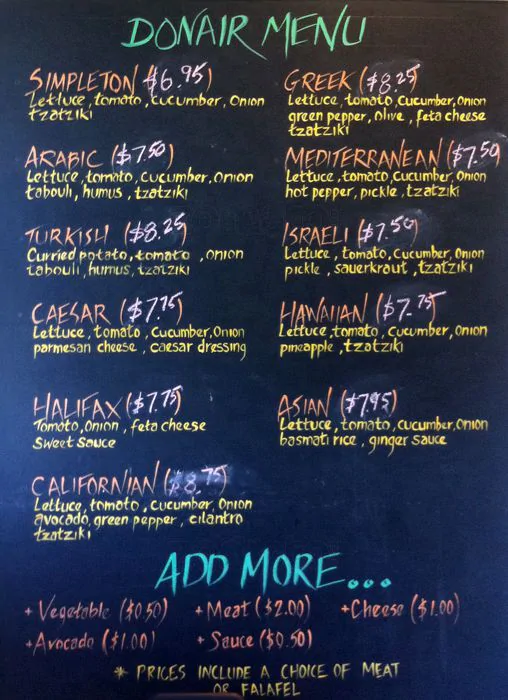 DONAIR MENU
SIMPLETON ($6.95)
Lettuce, tomato, cucumber, onion
tzatziki
ARABIC ($7.50)
Lettuce, tomato, cucumber, onion
tabouli, humus, tzatziki
TURKISH ($8.25)
Curried potato, tomato , onion
tabouli, humus, tzatziki
CAESAR ($7.75)
Lettuce, tomato, cucumber, onion
parmesan cheese, caesar dressing
HALIFAX ($7.75)
Tomato, onion, feta cheese
sweet sauce
CALIFORNIAN ($8.75)
Lettuce, tomato, cucumber, onion
avocado, green pepper, cilantro
tzatziki
GREEK ($8.25)
Lettuce, tomato, cucumber, onion
green pepper, olive, feta cheese
tzatziki
MEDITERRANEAN ($7.50
Lettuce, tomato, cucumber, onion
hot pepper, pickle, tzatziki
ISRAELI ($7.50)
Lettuce, tomato, cucumber, onion
pickle, sauerkraut, tzatziki
HAWAIIAN ($7.75)
Lettuce, tomato, cucumber, onion
pineapple, tzatziki
ASIAN ($7.95)
Lettuce, tomato, cucumber, onion
basmati rice, ginger sauce
ADD MORE...
+ Vegetable ($0.50) + Meat ($2.00) + Cheese ($1.00)
+ Avocado ($1.00) + Sauce ($0.50)
* PRICES INCLUDE A CHOICE OF MEAT
OR FALAFEL